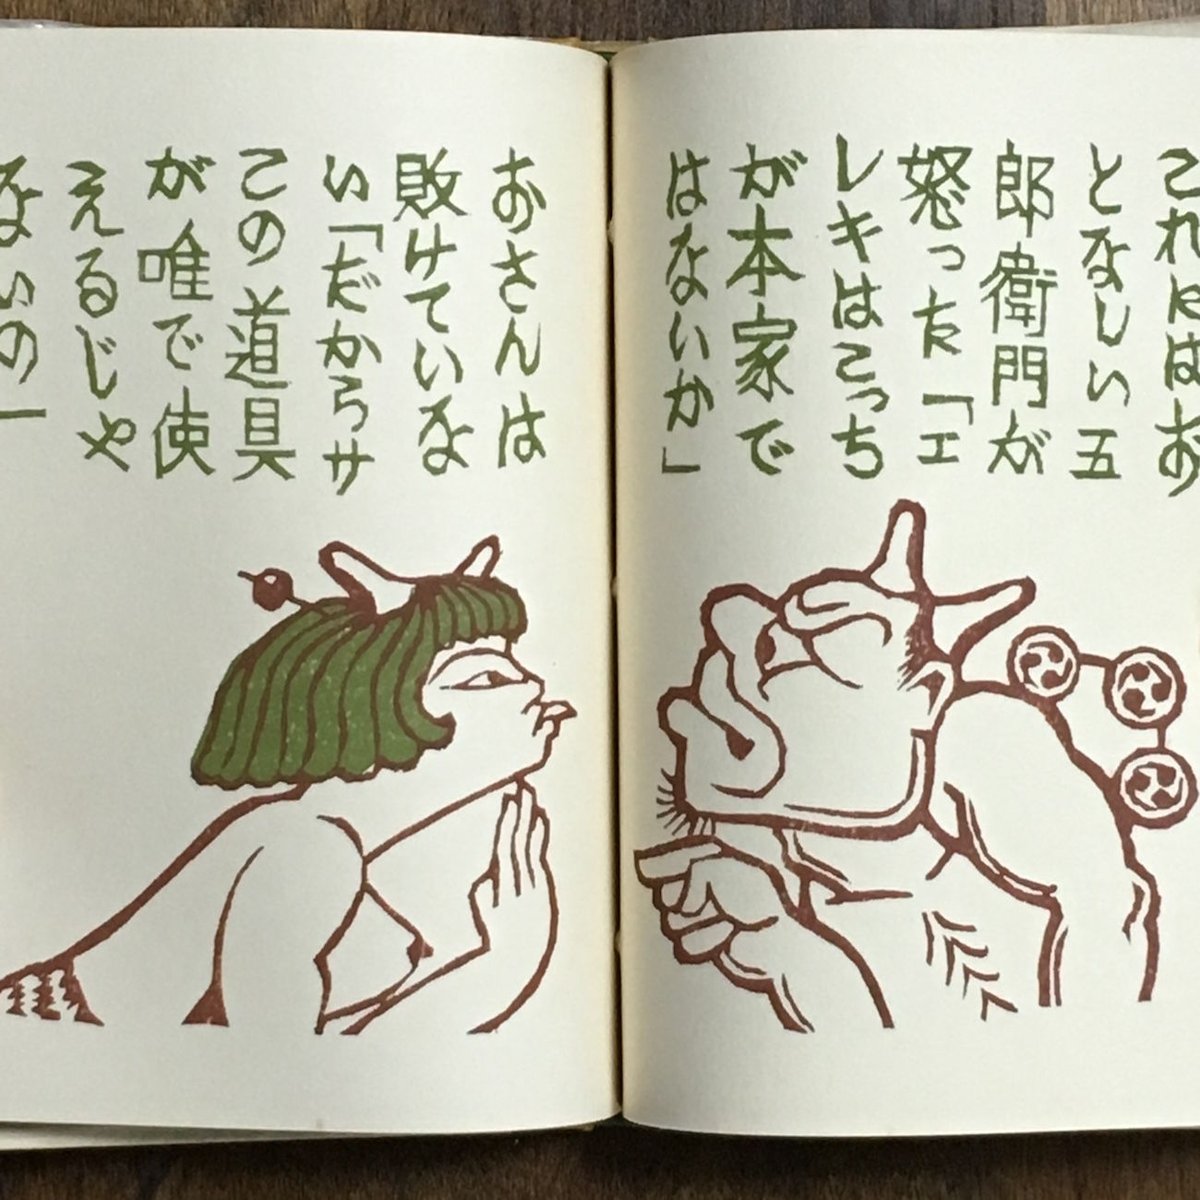 これにはお
となしい五
郎衛門が
怒った「エ
レキはこっち
が本家で
はないか」
おさんは
敗けていな
い「だからサ
この道具
が唯で使
えるじゃ
ないの」